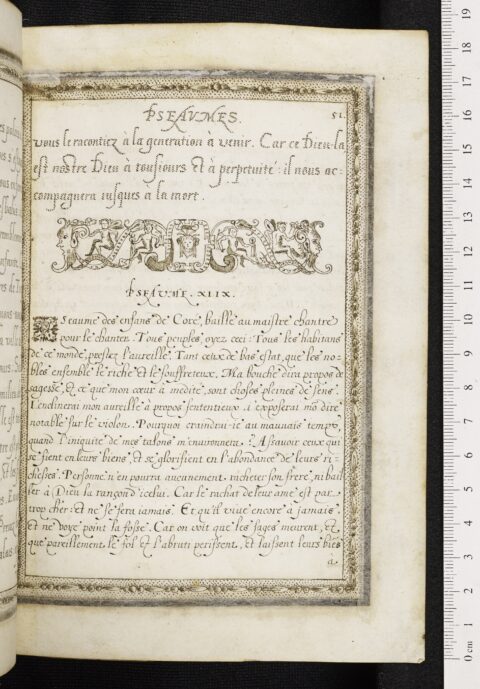 PSEAUMES.
51.
vous le racontiez à la generation à venir. Car ce Dieu-la
est nostre Dieu à tousjours et à perpetuité: il nous ac-
compagnera jusques a la mort.
PSEAUME. XIIX.
Pseaume des enfans de Coré, baillé au maistre chantre
pour le chanter. Tous peuples, oyez ceci: Tous les habitans
de ce monde, prestez l'aureille. Tant ceux de bas estat, que les no-
bles ensemble le riche et le souffreteux. Ma bouche dira propos de
sagesse, et ce que mon cœur a medité, sont choses pleines de sens.
J'enclinerai mon aureille à propos sententieux, j'exposerai mō dire
notable sur le violon. Pourquoi craindrai-je au mauvais temps,
quand l'iniquité de mes talons m'environnera? Assavoir ceux qui
se fient en leurs biens, et se glorifient en l'abondance de leurs ri-
chesses. Personne n'en pourra aucunement racheter son frere, ni bail
ler à Dieu la rançon d'icelui. Car le rachat de leur ame est par
trop cher: et ne se fera jamais. Et qu'il vive encore à jamais,
et ne voye point la fosse. Car on voit que les sages meurent, et
que pareillement le fol et l'abruti perissent, et laissent leurs biēs
a
0 cm
1
2
3
4
5
6
7
8
9
10
11
12
13
14
15
16
17
18
19